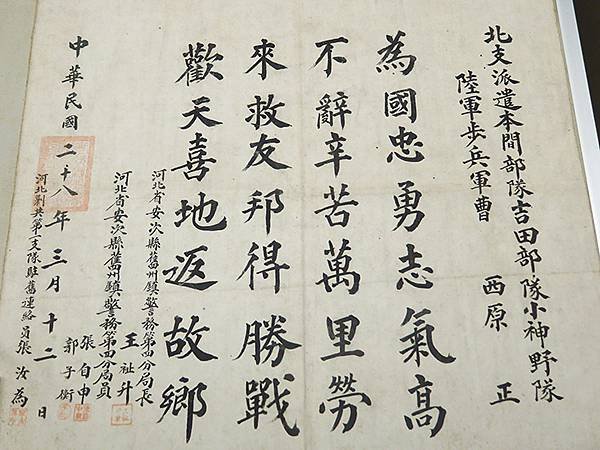 北支派遣本間部隊吉田部隊小神野隊
陸軍步兵軍曹 西原 正
為國忠勇志氣高
不辭辛苦萬里勞
來救友邦得勝戰
歡天喜地返故鄉
河北省安次縣舊州鎮警務第四分局長
王祉升
河北省安次縣舊州鎮警務第四分局員
張自申
郭子衡
河北剿共第一支隊駐舊連絡員張汝為
中華民國二十八年三月十二日